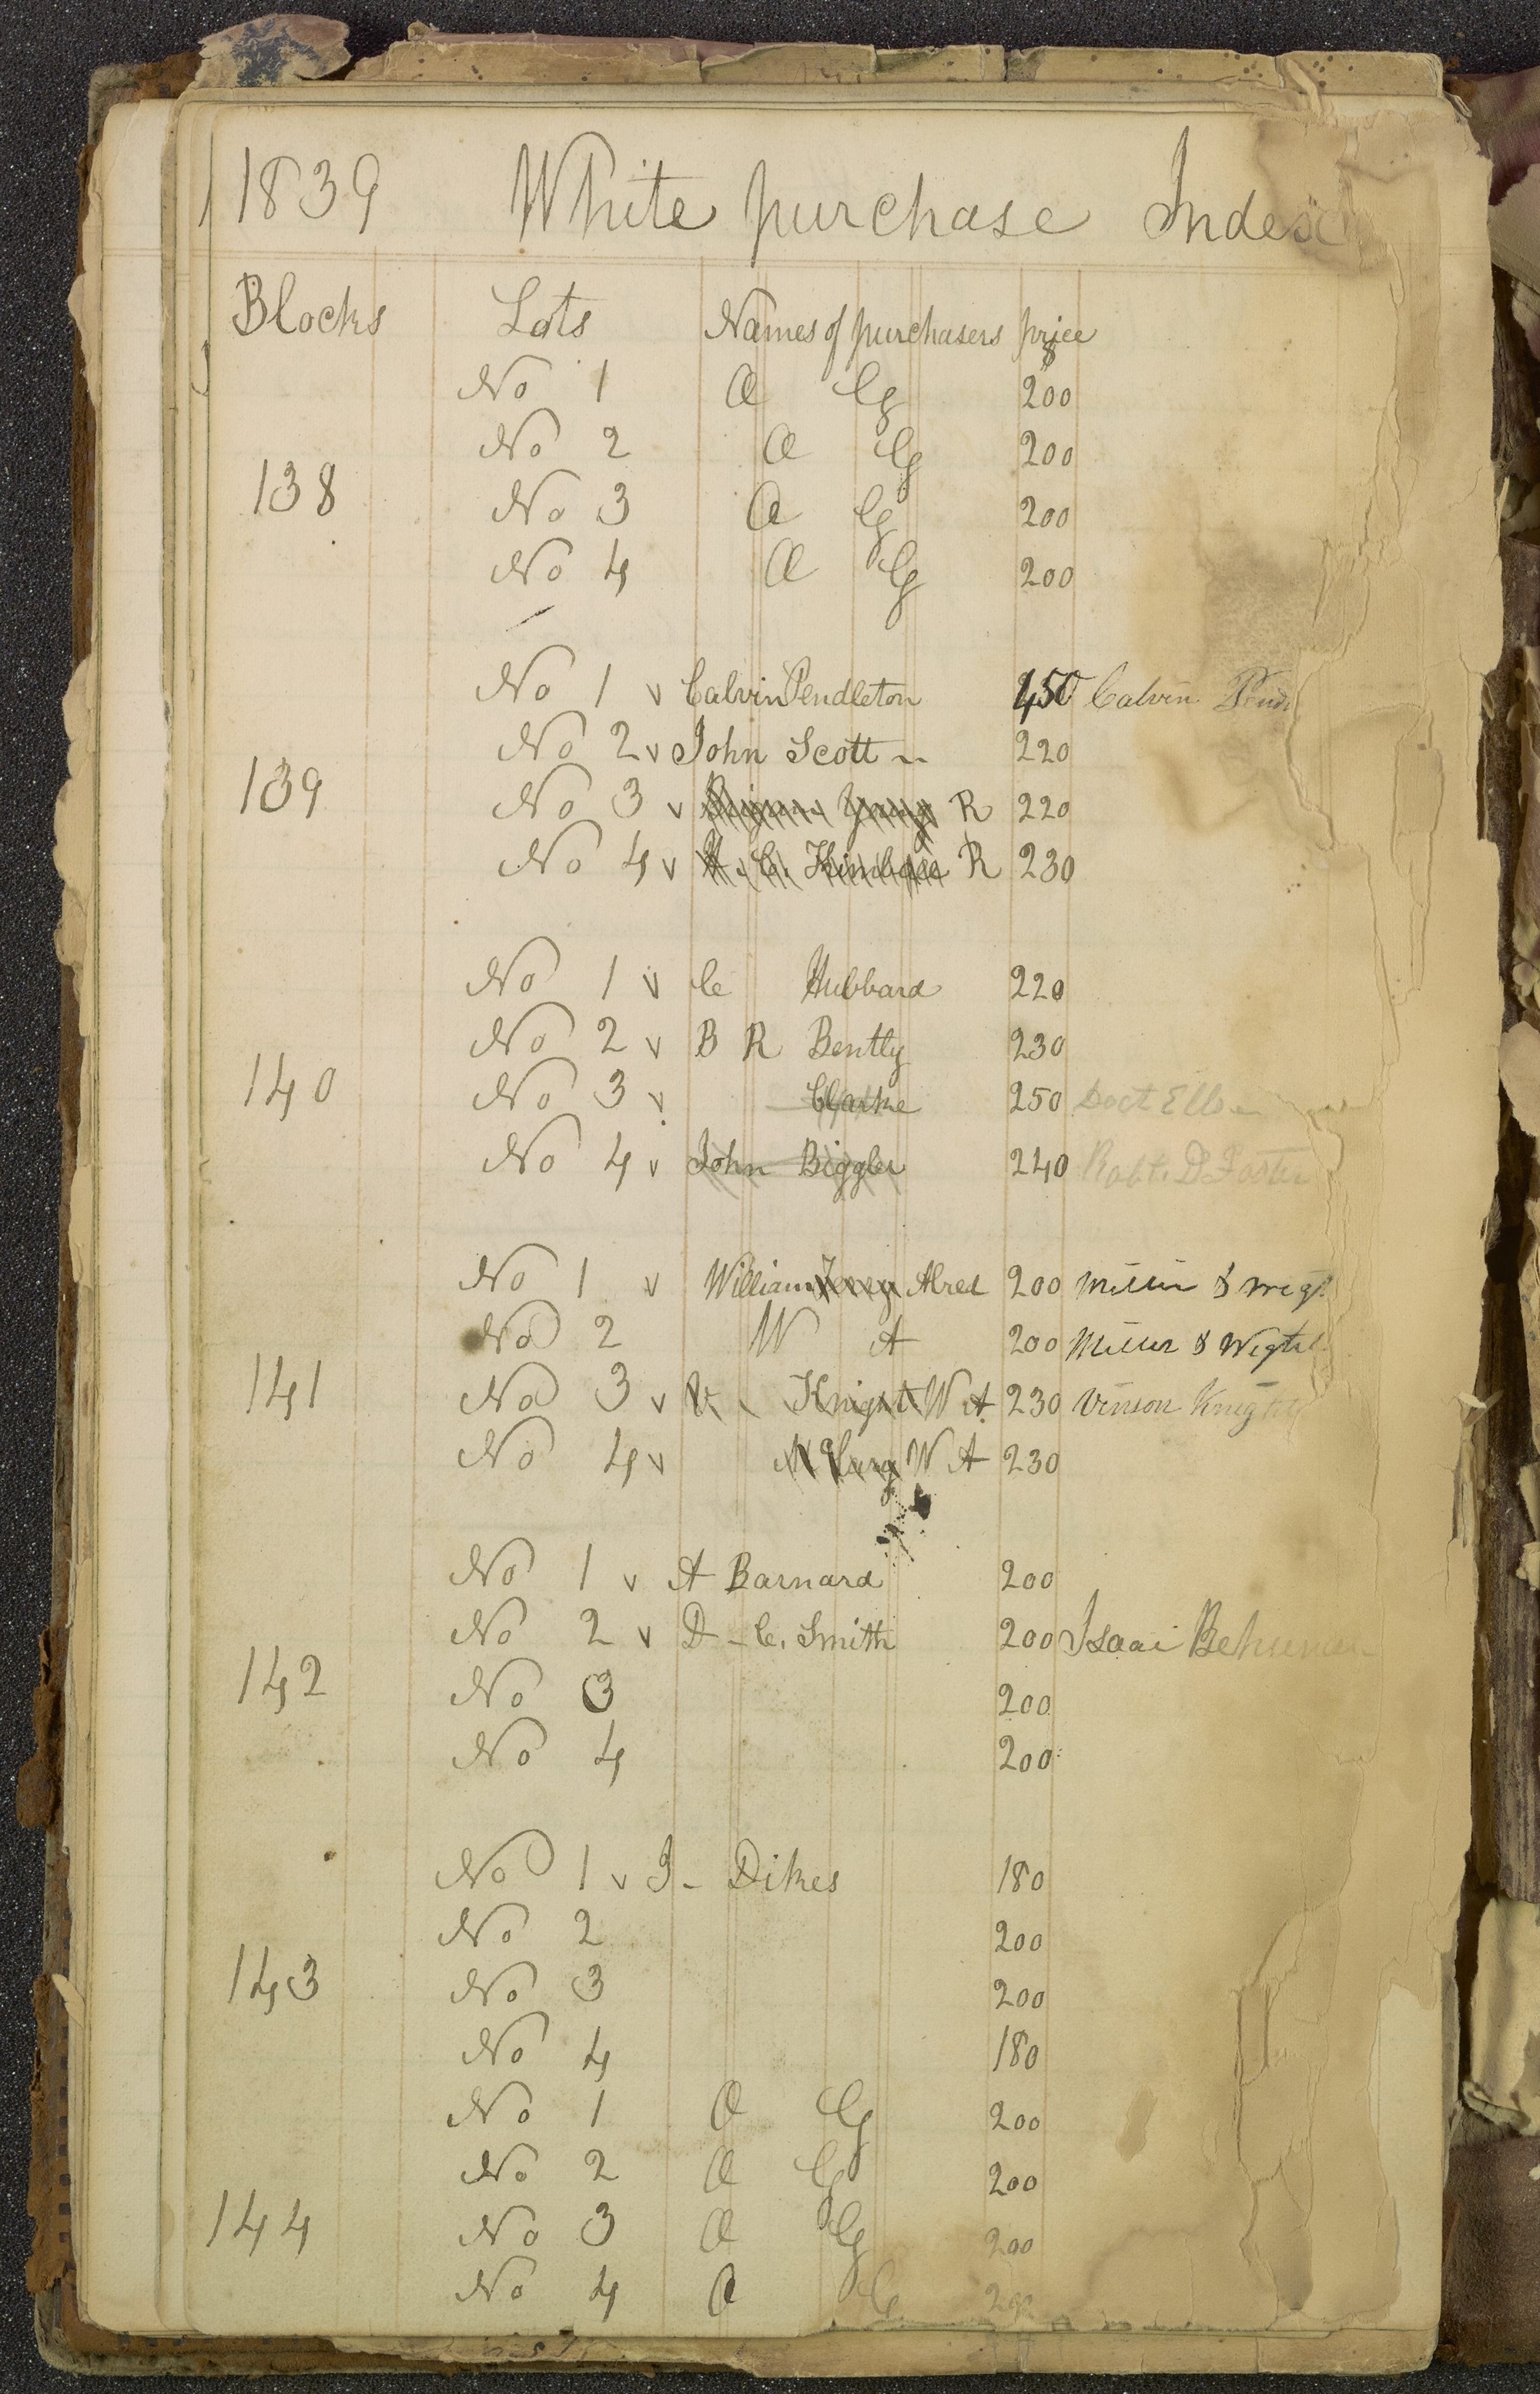 1839 White purchase Index
Blocks Lots Names of purchasers price
$
No 1 O Cg 200
No 2 O Cg 200
138
No 3 O Cg 200
No 4 O Cg 200
No 1 v Calvin Pendleton 450 Calvin Pend
No 2 v John Scott 220
139
No 3 v R 220
No 4 v H. C. Kimball R 230
No 1 v C Hubbard 220
No 2 v B R Bently 230
140
No 3 v Clarke 250 Doct Ells
No 4 v John Biggler 240 Robt. D Foster
No 1 v William Alred 200 Miller & Wigt
No 2 W A 200 Miller & Wight
141
No 3 v V. Knight W A 230 Vinson Knight
No 4 v W A 230
No 1 v A Barnard 200
No 2 v D - C. Smith 200 Isaai
142
No 3 200
No 4 200
No 1 v J - Dikes 180
No 2 200
143
No 3 200
No 4 180
No 1 O Cg 200
No 2 O Cg 200
144
No 3 O Cg 200
No 4 O C 200